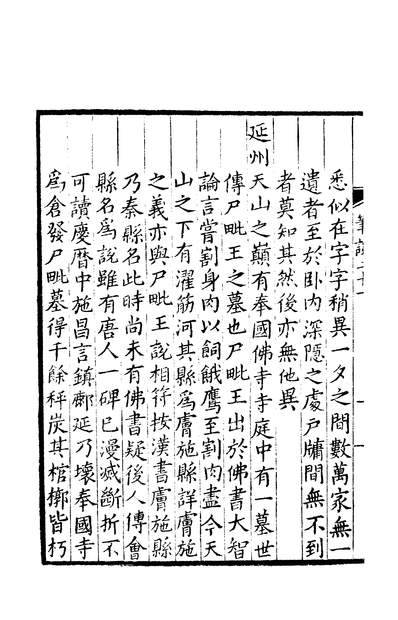 悉似在字字稍異一夕之間數萬家無一
遺者至於卧内深隱之處戸牖間無不到
者莫知其然後亦無他異
延州天山之巔有奉國佛寺寺庭中有一墓世
傳尸毗王之墓也尸毗王出於佛書大智
論言嘗割身肉以飼餓鷹至割肉盡今天
山之下有濯筋河其縣爲膚施縣詳膚施
之義亦與尸毗王說相符按漢書膚施縣
乃秦縣名此時尚未有佛書疑後人傳會
縣名爲說雖有唐人一碑已漫滅斷折不
可讀慶曆中施昌言鎮鄜延乃壞奉國寺
爲倉發尸毗墓得千餘秤炭其棺槨皆朽